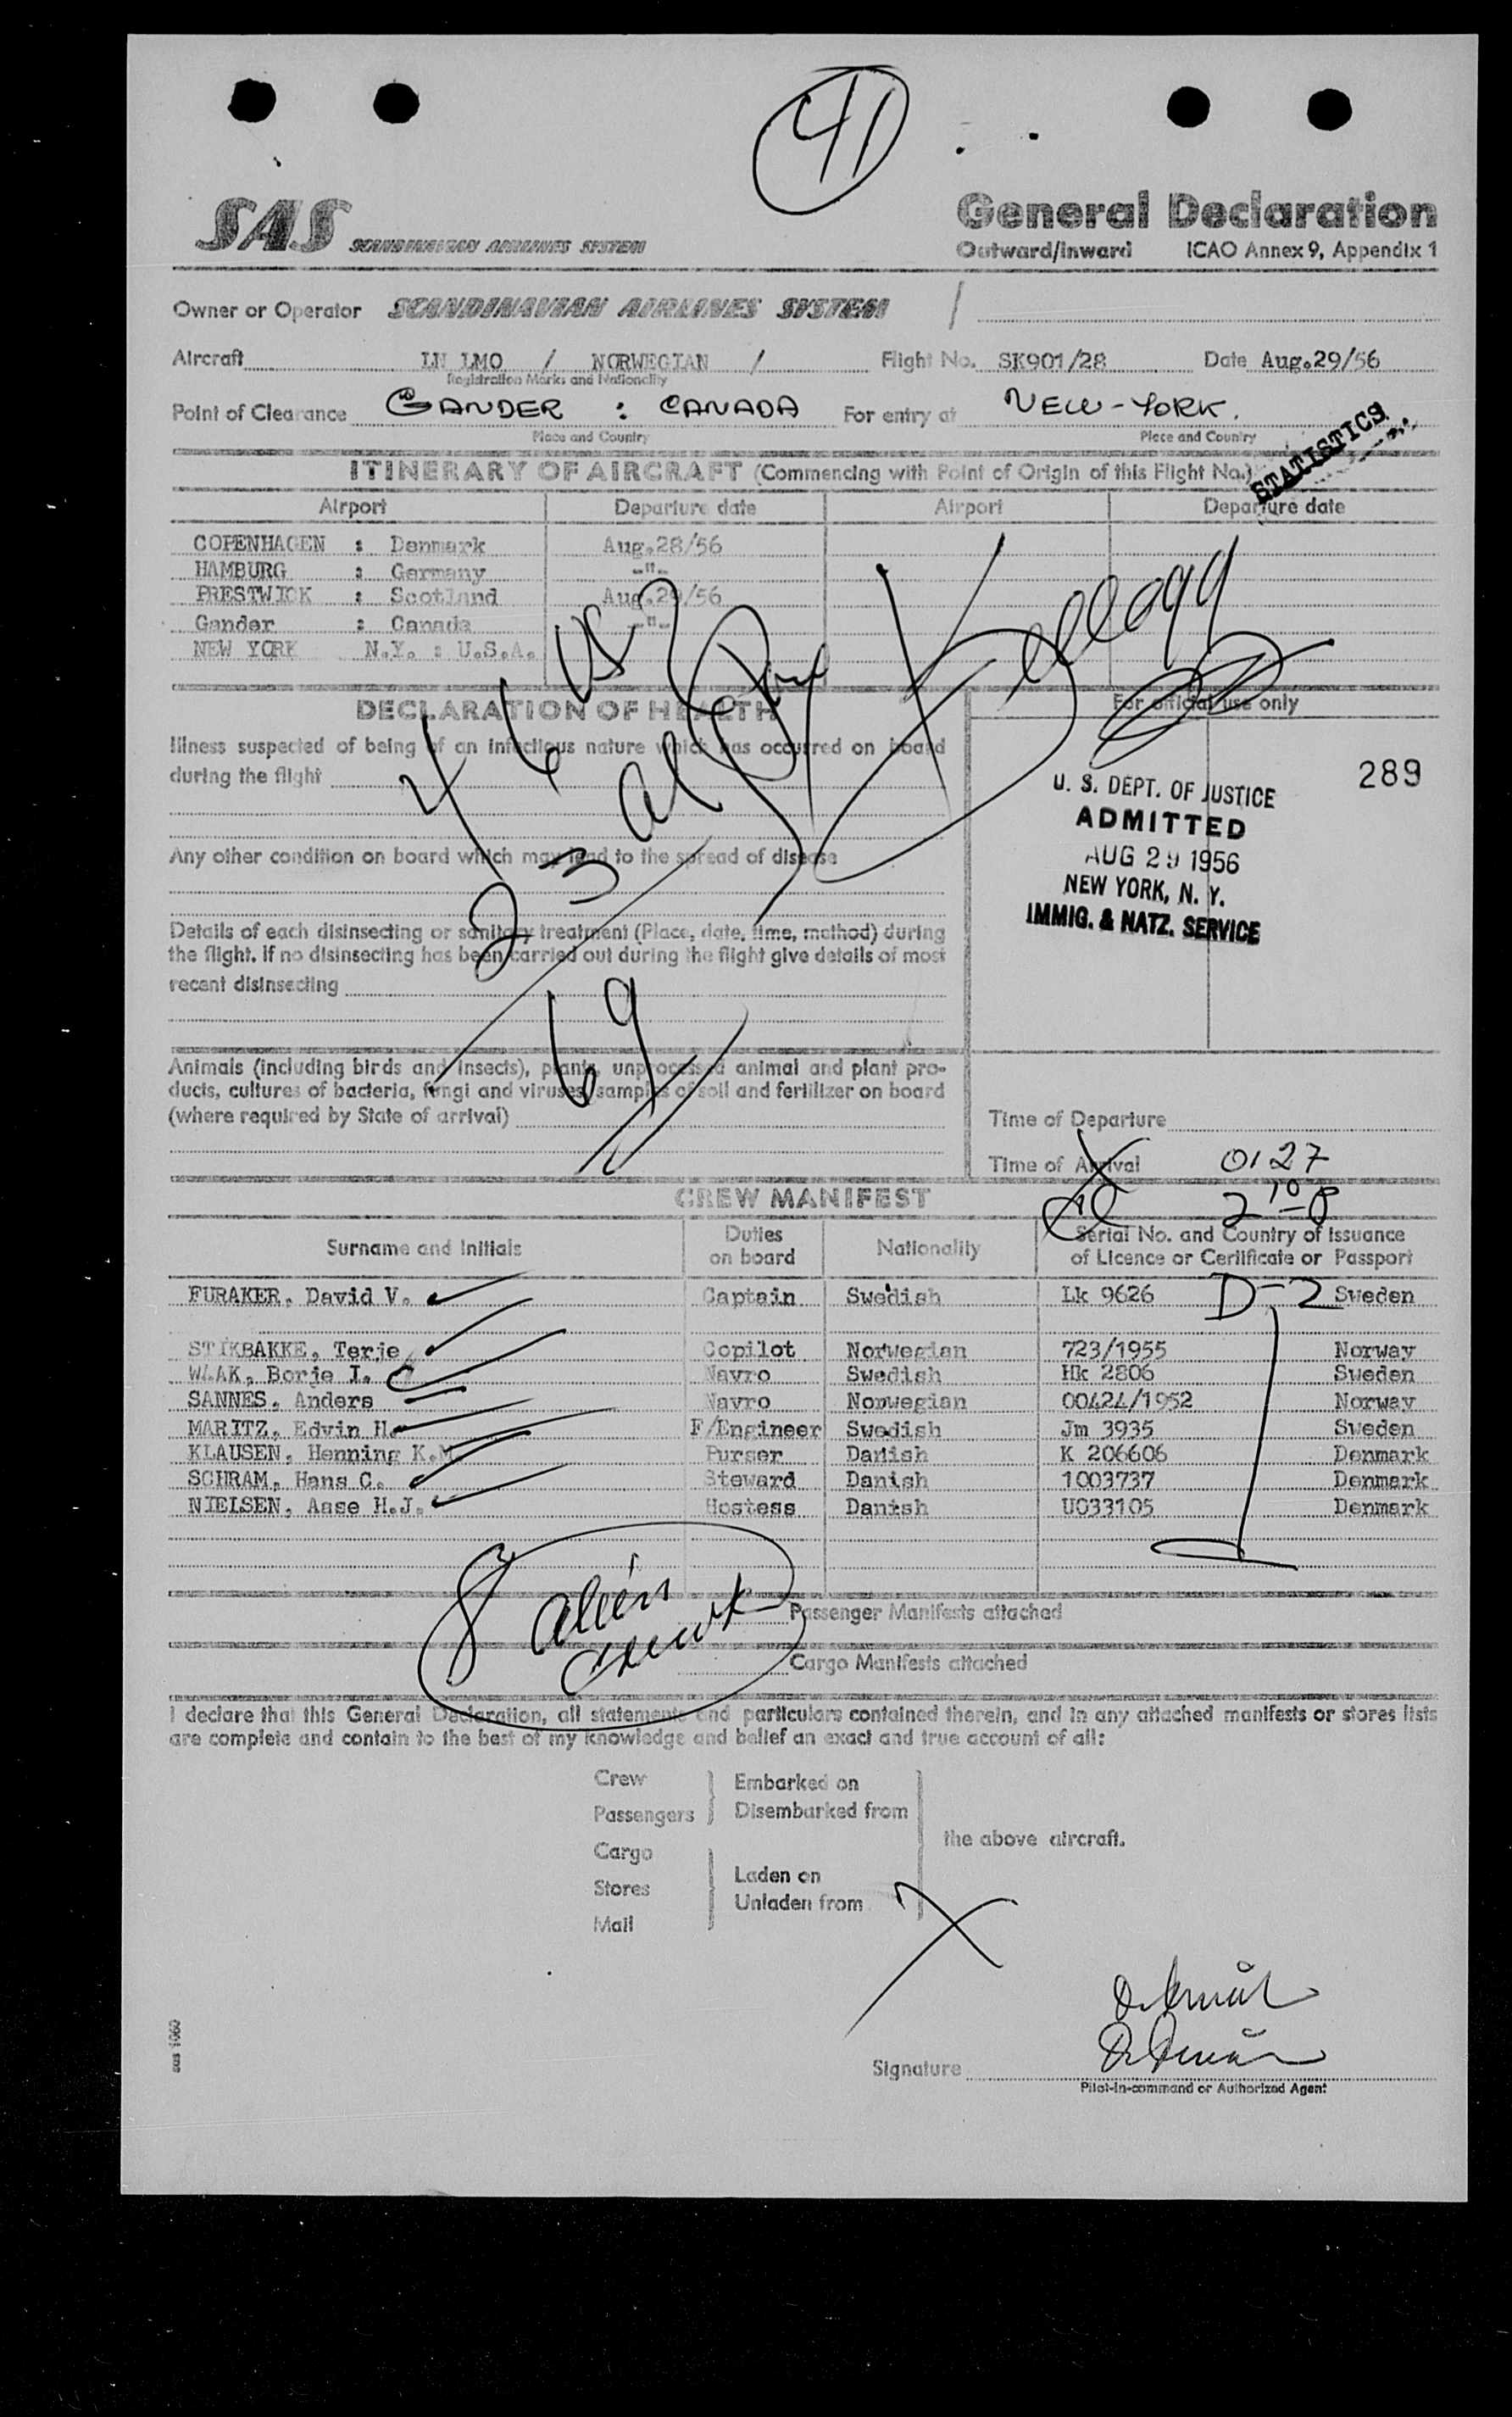 41
SAS SCANDINAVIAN AIRLINES SYSTEM
General Declaration
Outward/Inward ICAO Annex 9, Appendix 1
Owner or Operator SCANDINAVIAN AIRLINES SYSTEM /
Aircraft LN LMO / NORWEGIAN / Flight No. SK901/28 Date Aug.29/56
Registration Marks and Nationality
Point of Clearance GANDER : CANADA For entry at NEW-YORK.
Place and Country Place and Country
STATISTICS
ITINERARY OF AIRCRAFT (Commencing with Point of Origin of this Flight No.)
Airport Departure date Airport Departure date
COPENHAGEN : Denmark Aug.28/56
HAMBURG : Germany -"-
PRESTWICK : Scotland Aug.29/56
Gander : Canada -"-
NEW YORK N.Y. : U.S.A.
46 US
23 al
69
Kellogg
DECLARATION OF HEALTH
For official use only
Illness suspected of being of an infectious nature which has occurred on board
during the flight
289
U. S. DEPT. OF JUSTICE
ADMITTED
AUG 29 1956
NEW YORK, N. Y.
IMMIG. & NATZ. SERVICE
Any other condition on board which may lead to the spread of disease
Details of each disinsecting or sanitary treatment (Place, date, time, method) during
the flight. If no disinsecting has been carried out during the flight give details of most
recent disinsecting
Animals (including birds and insects), plants, unprocessed animal and plant pro-
ducts, cultures of bacteria, fungi and viruses, samples of soil and fertilizer on board
(where required by State of arrival)
Time of Departure
Time of Arrival 0127
CREW MANIFEST
Surname and Initials Duties on board Nationality Serial No. and Country of Issuance of Licence or Certificate or Passport
FURAKER, David V. Captain Swedish Lk 9626 D-2 Sweden
STIKBAKKE, Terje Copilot Norwegian 723/1955 Norway
WAAK, Borje I. Navro Swedish Hk 2806 Sweden
SANNES, Anders Navro Norwegian 00424/1952 Norway
MARITZ, Edvin H. F/Engineer Swedish Jm 3935 Sweden
KLAUSEN, Henning K.M. Purser Danish K 206606 Denmark
SCHRAM, Hans C. Steward Danish 1003737 Denmark
NIELSEN, Aase H.J. Hostess Danish U033105 Denmark
8 alien
crew
Passenger Manifests attached
Cargo Manifests attached
I declare that this General Declaration, all statements and particulars contained therein, and in any attached manifests or stores lists
are complete and contain to the best of my knowledge and belief an exact and true account of all:
Crew
Passengers
Embarked on
Disembarked from
Cargo
Stores
Mail
Laden on
Unladen from
the above aircraft.
Signature
Pilot-in-command or Authorized Agent
sas 1060